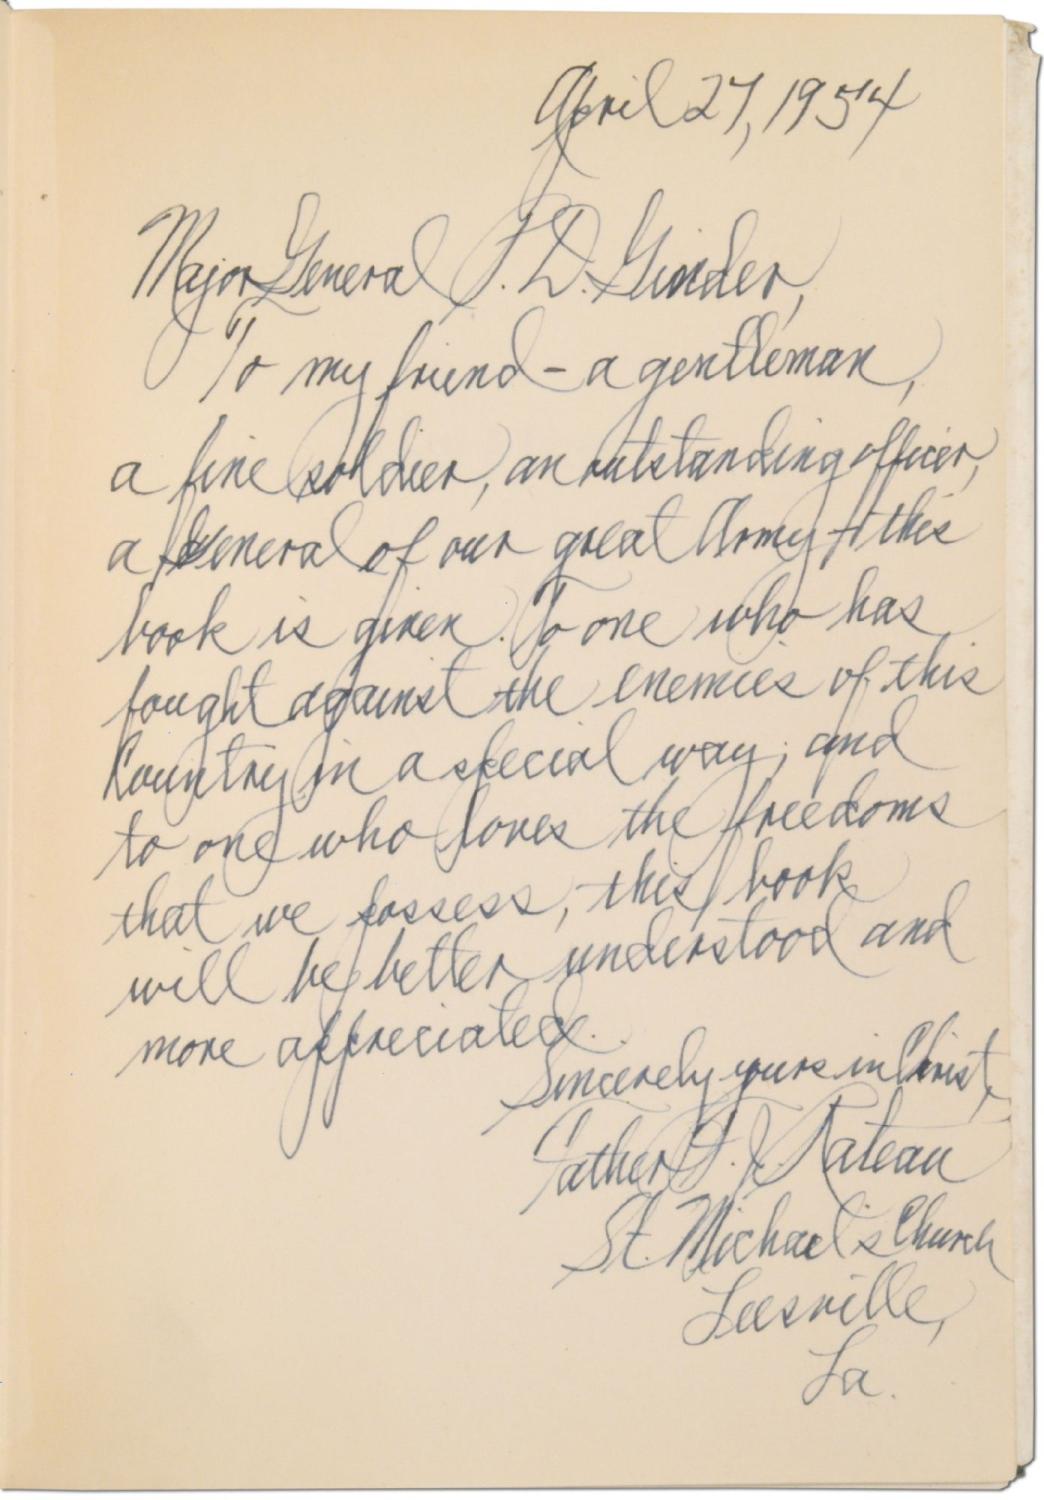 April 27, 1954
Major General P. D. Ginder,
To my friend - a gentleman,
a fine soldier, an outstanding officer,
a General of our great Army + this
book is given. To one who has
fought against the enemies of this
Country in a special way; and
to one who loves the freedoms
that we possess, this book
will be better understood and
more appreciated.
Sincerely yours in Christ,
Father F. J. Rateau
St. Michael's Church
Leesville,
La.